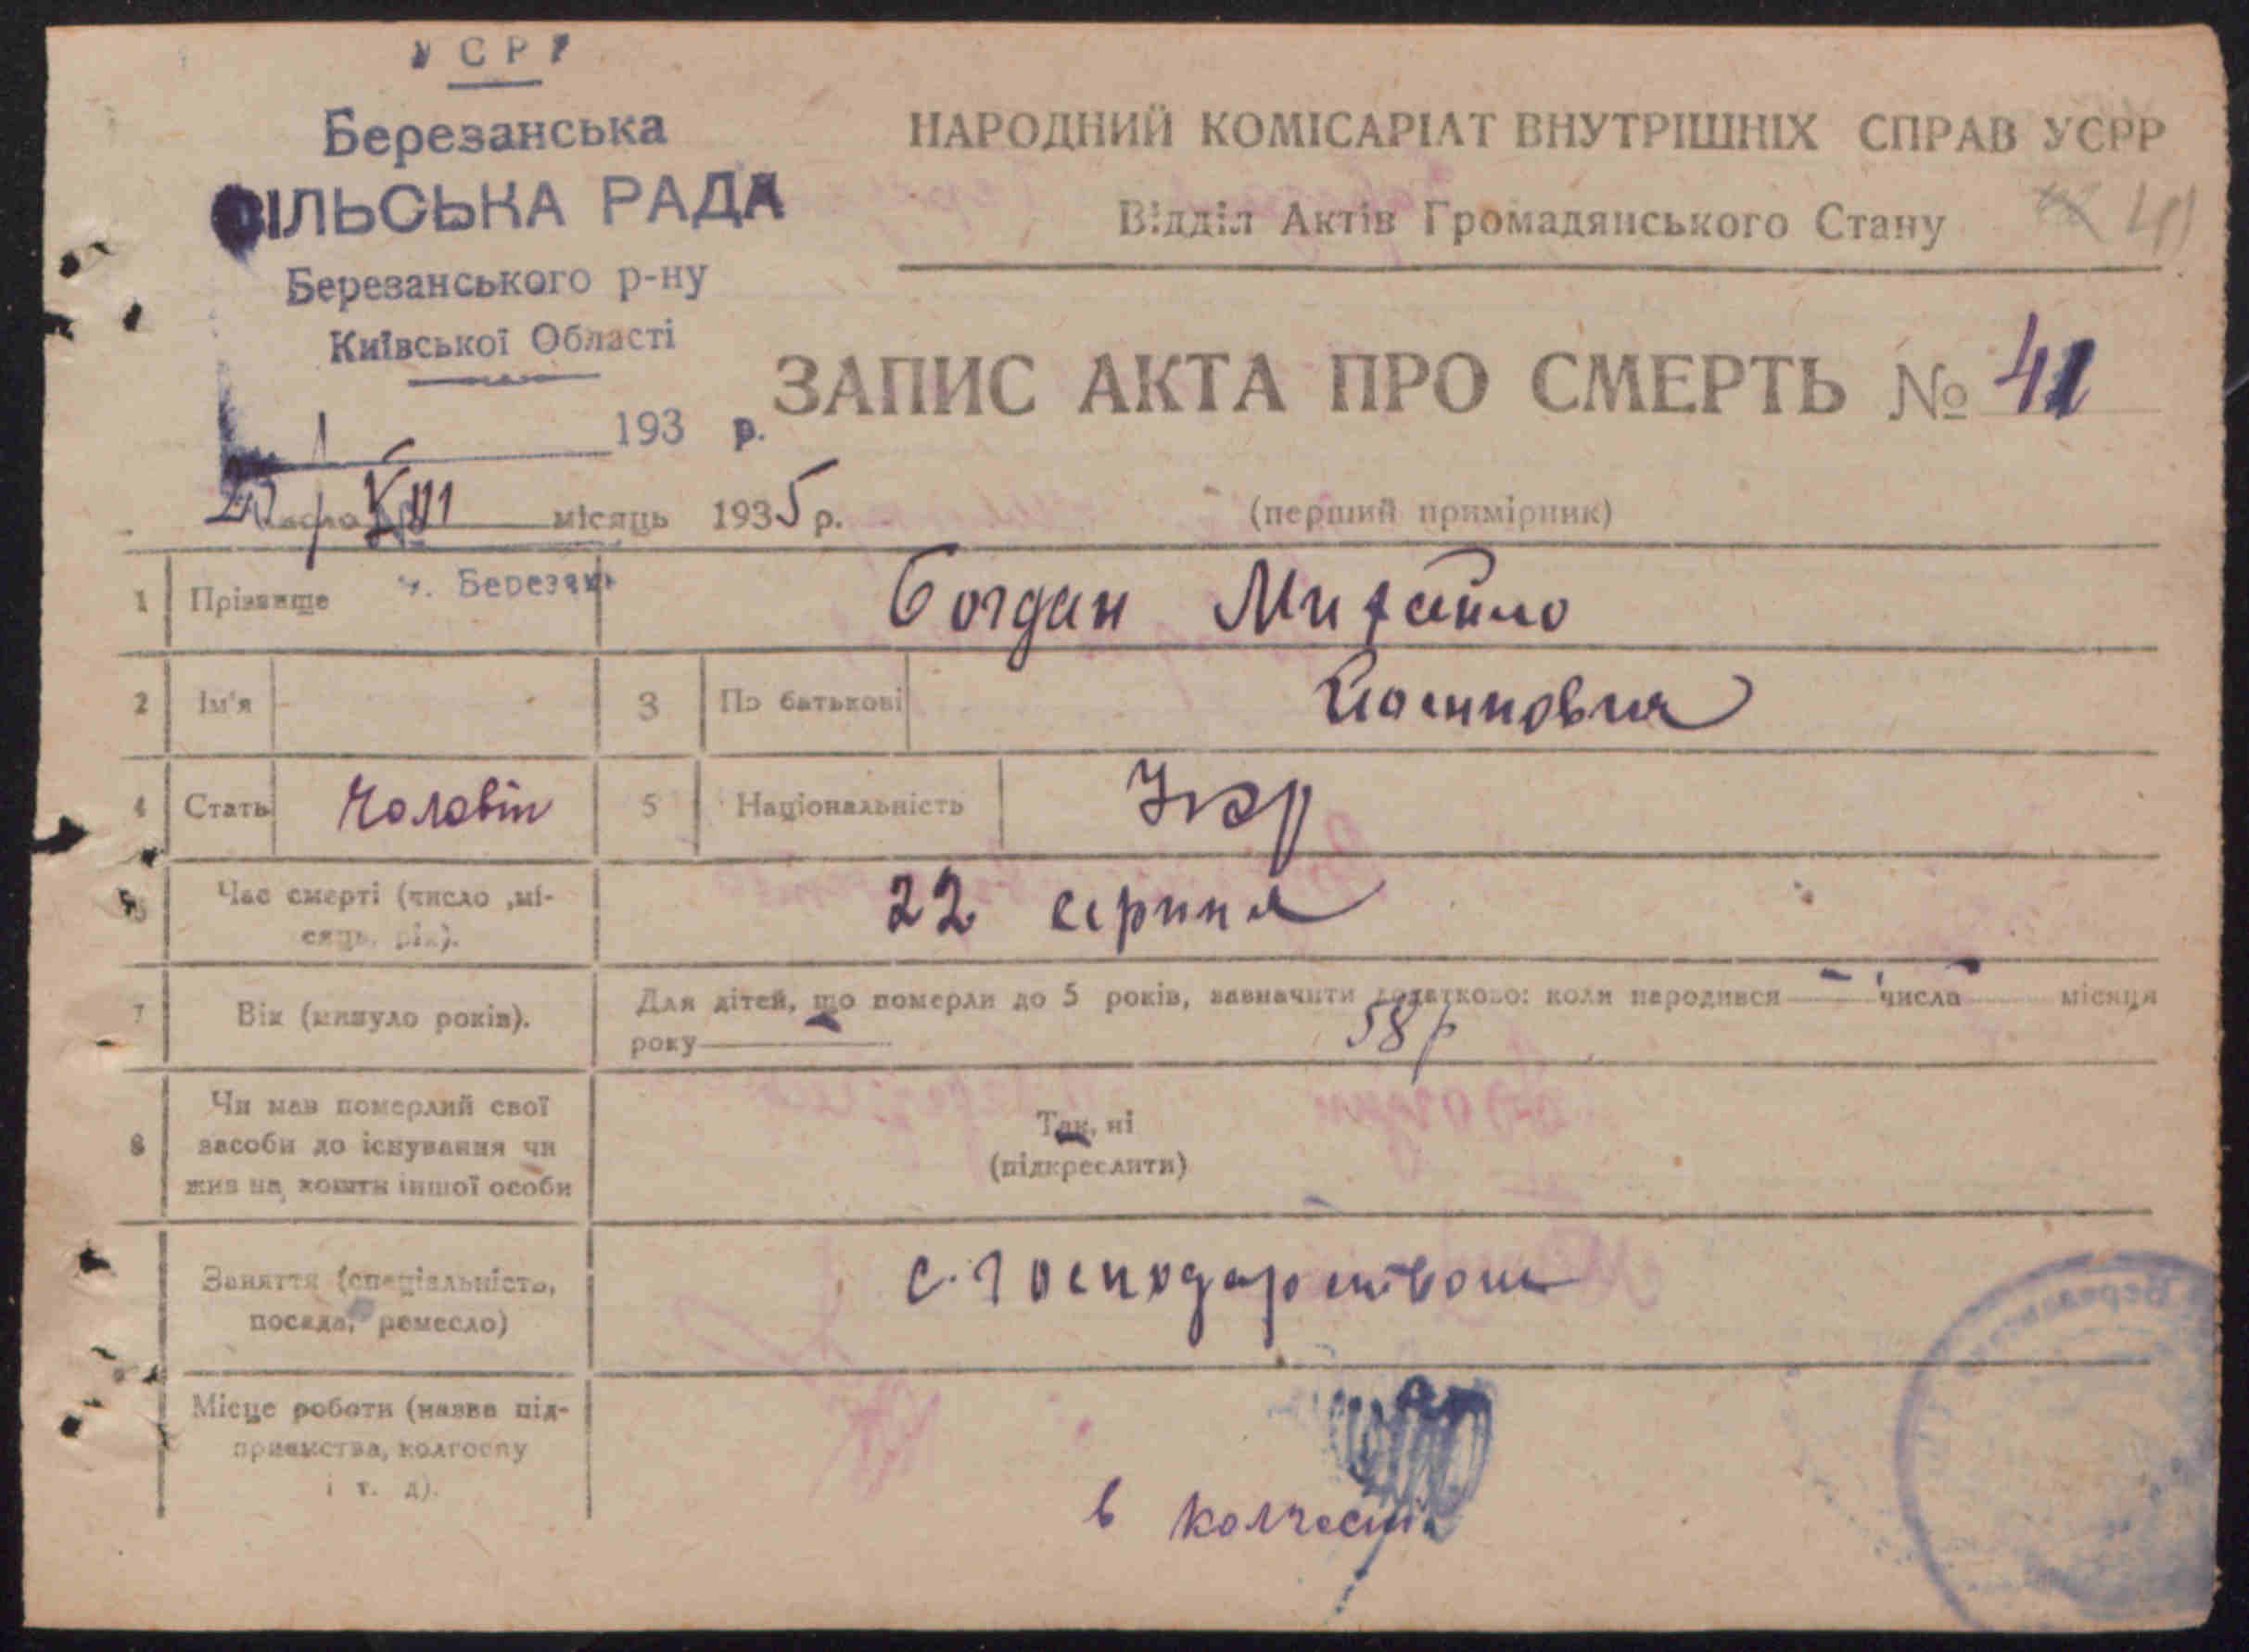 УСРР
Березанська
СІЛЬСЬКА РАДА
Березанського р-ну
Київської Області
193 р.
НАРОДНИЙ КОМІСАРІАТ ВНУТРІШНІХ СПРАВ УСРР
Відділ Актів Громадянського Стану
41
ЗАПИС АКТА ПРО СМЕРТЬ № 41
число VIII місяць 1935 р.
(перший примірник)
1 Прізвище Богдан Михайло
м. Березань
2 Ім'я 3 По батькові
4 Стать Чоловік 5 Національність Укр
Час смерті (число ,мі-
сяць, рік).
22 серпня
7 Вік (минуло років).
Для дітей, що померли до 5 років, зазначити додатково: коли народився числа місяця
року
58 р
8 Чи мав померлий свої
засоби до існування чи
жив на кошти іншої особи
Так, ні
(підкреслити)
Заняття (спеціальність,
посада, ремесло)
с. господарством
Місце роботи (назва під-
приємства, колгоспу
і т. д).
в колгоспі